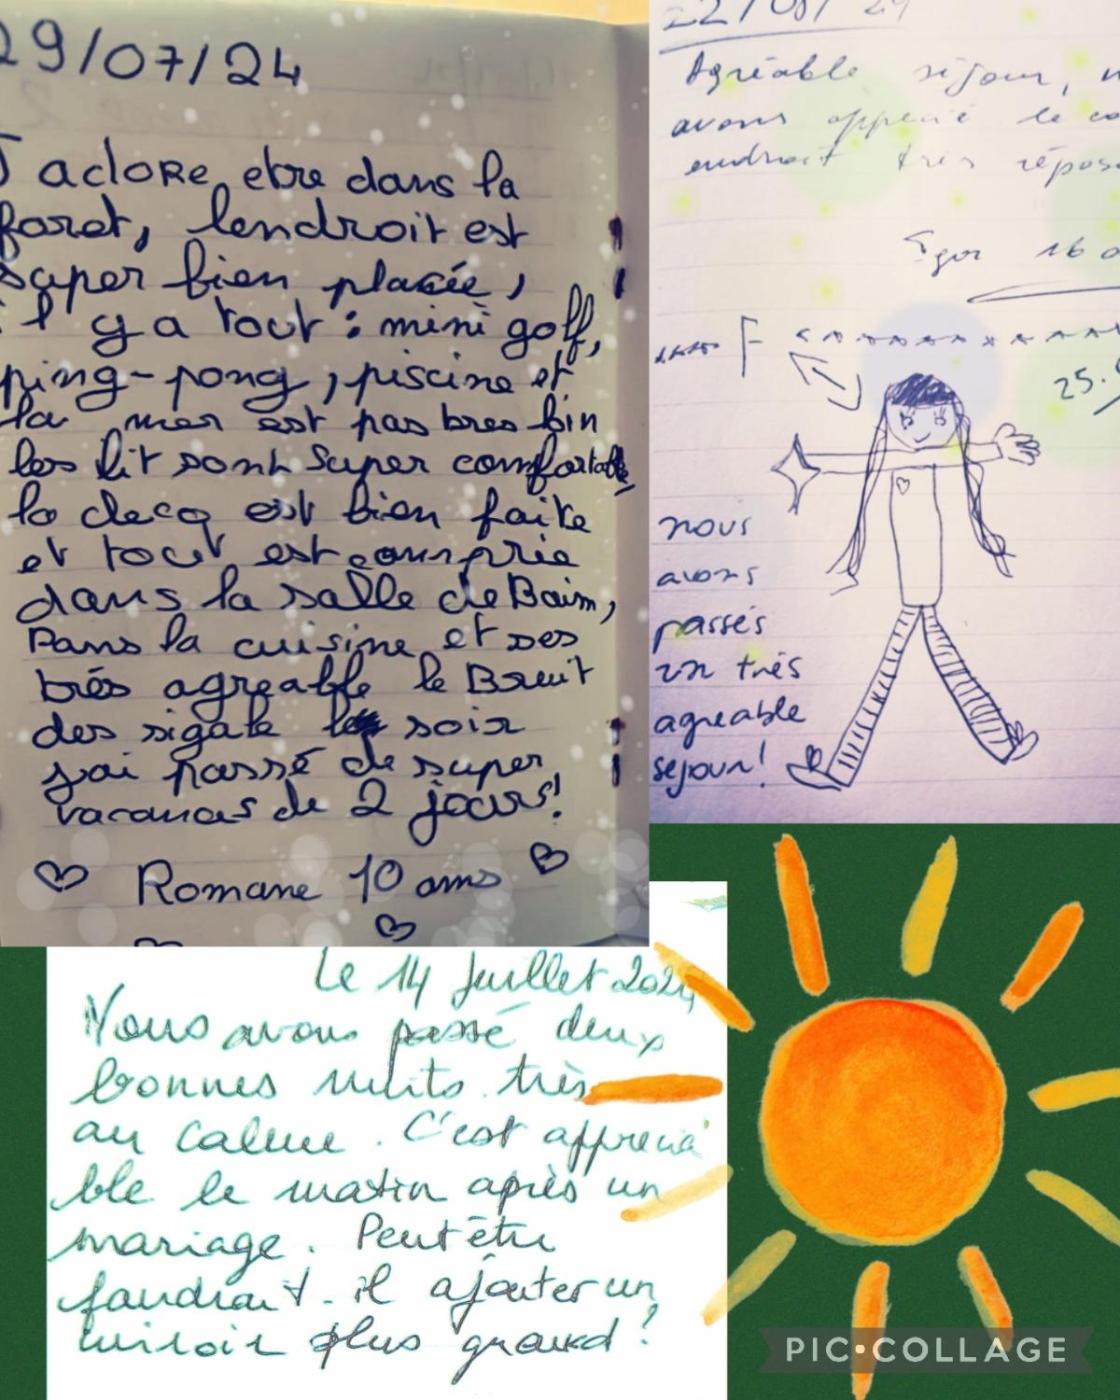 29/07/24
J'adore etre dans la
foret, lendroit est
super bien placée,
il y a tout : mini golf,
ping-pong, piscine et
la mer est pas tres bin
les lit sont super comfortable
la deco est bien faite
et tout est comprie
dans la salle de Bain,
Dans la cuisine et ses
trés agreable le Bruit
des sigale le soir
j'ai passé de super
vacances de 2 jours!
Romane 10 ans
22/08/24
Agréable séjour, n
avons apprécié le ca
endroit très repos
Igor 16 a
25.
nous
avons
passés
un très
agreable
sejour!
Le 14 Juillet 2024
Nous avons passé deux
bonnes nuits très
au calme. C'est apprecia
ble le matin après un
mariage. Peut être
faudrait-il ajouter un
miroir plus grand ?
PIC•COLLAGE